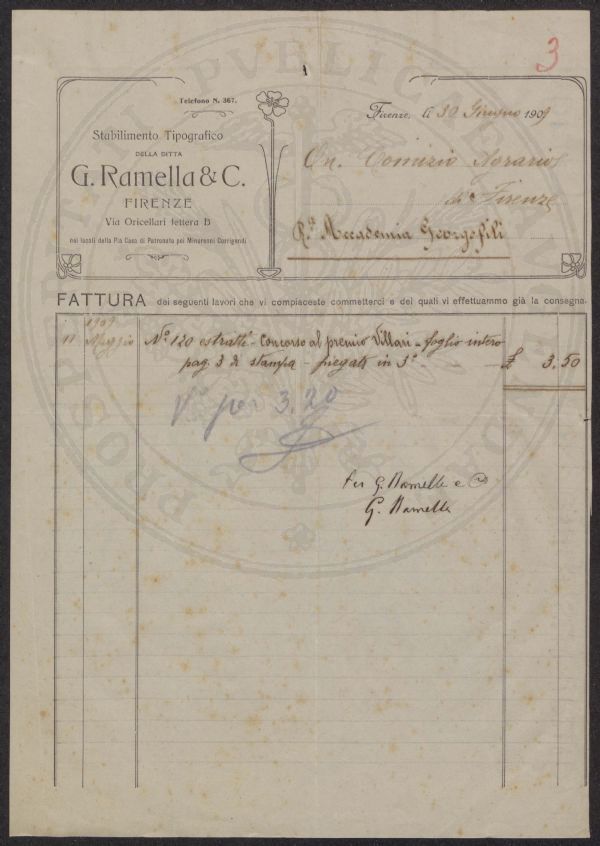 3
Telefono N. 367.
Stabilimento Tipografico
DELLA DITTA
G. Ramella & C.
FIRENZE
Via Oricellari lettera B
nei locali della Pia Casa di Patronato pei Minorenni Corrigendi
Firenze, li 30 Giugno 1909
On. Comizio Agrario
di Firenze
R.ª Accademia Georgofili
FATTURA dei seguenti lavori che vi compiaceste commetterci e dei quali vi effettuammo già la consegna.
1909
11 Maggio Nº 120 estratti - Concorso al premio Villari - foglio intero
pag. 3 di stampa - piegato in 3º £ 3.50
Vº per 3.20
Per G. Ramella e C.
G. Ramella